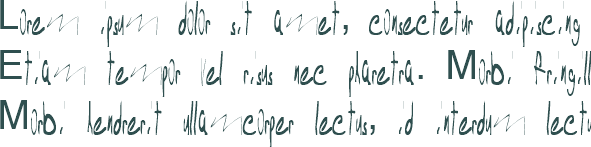 Lorem ipsum dolor sit amet, consectetur adipiscing
Etiam tempor vel risus nec pharetra. Morbi fringill
Morbi hendrerit ullamcorper lectus, id interdum lectu